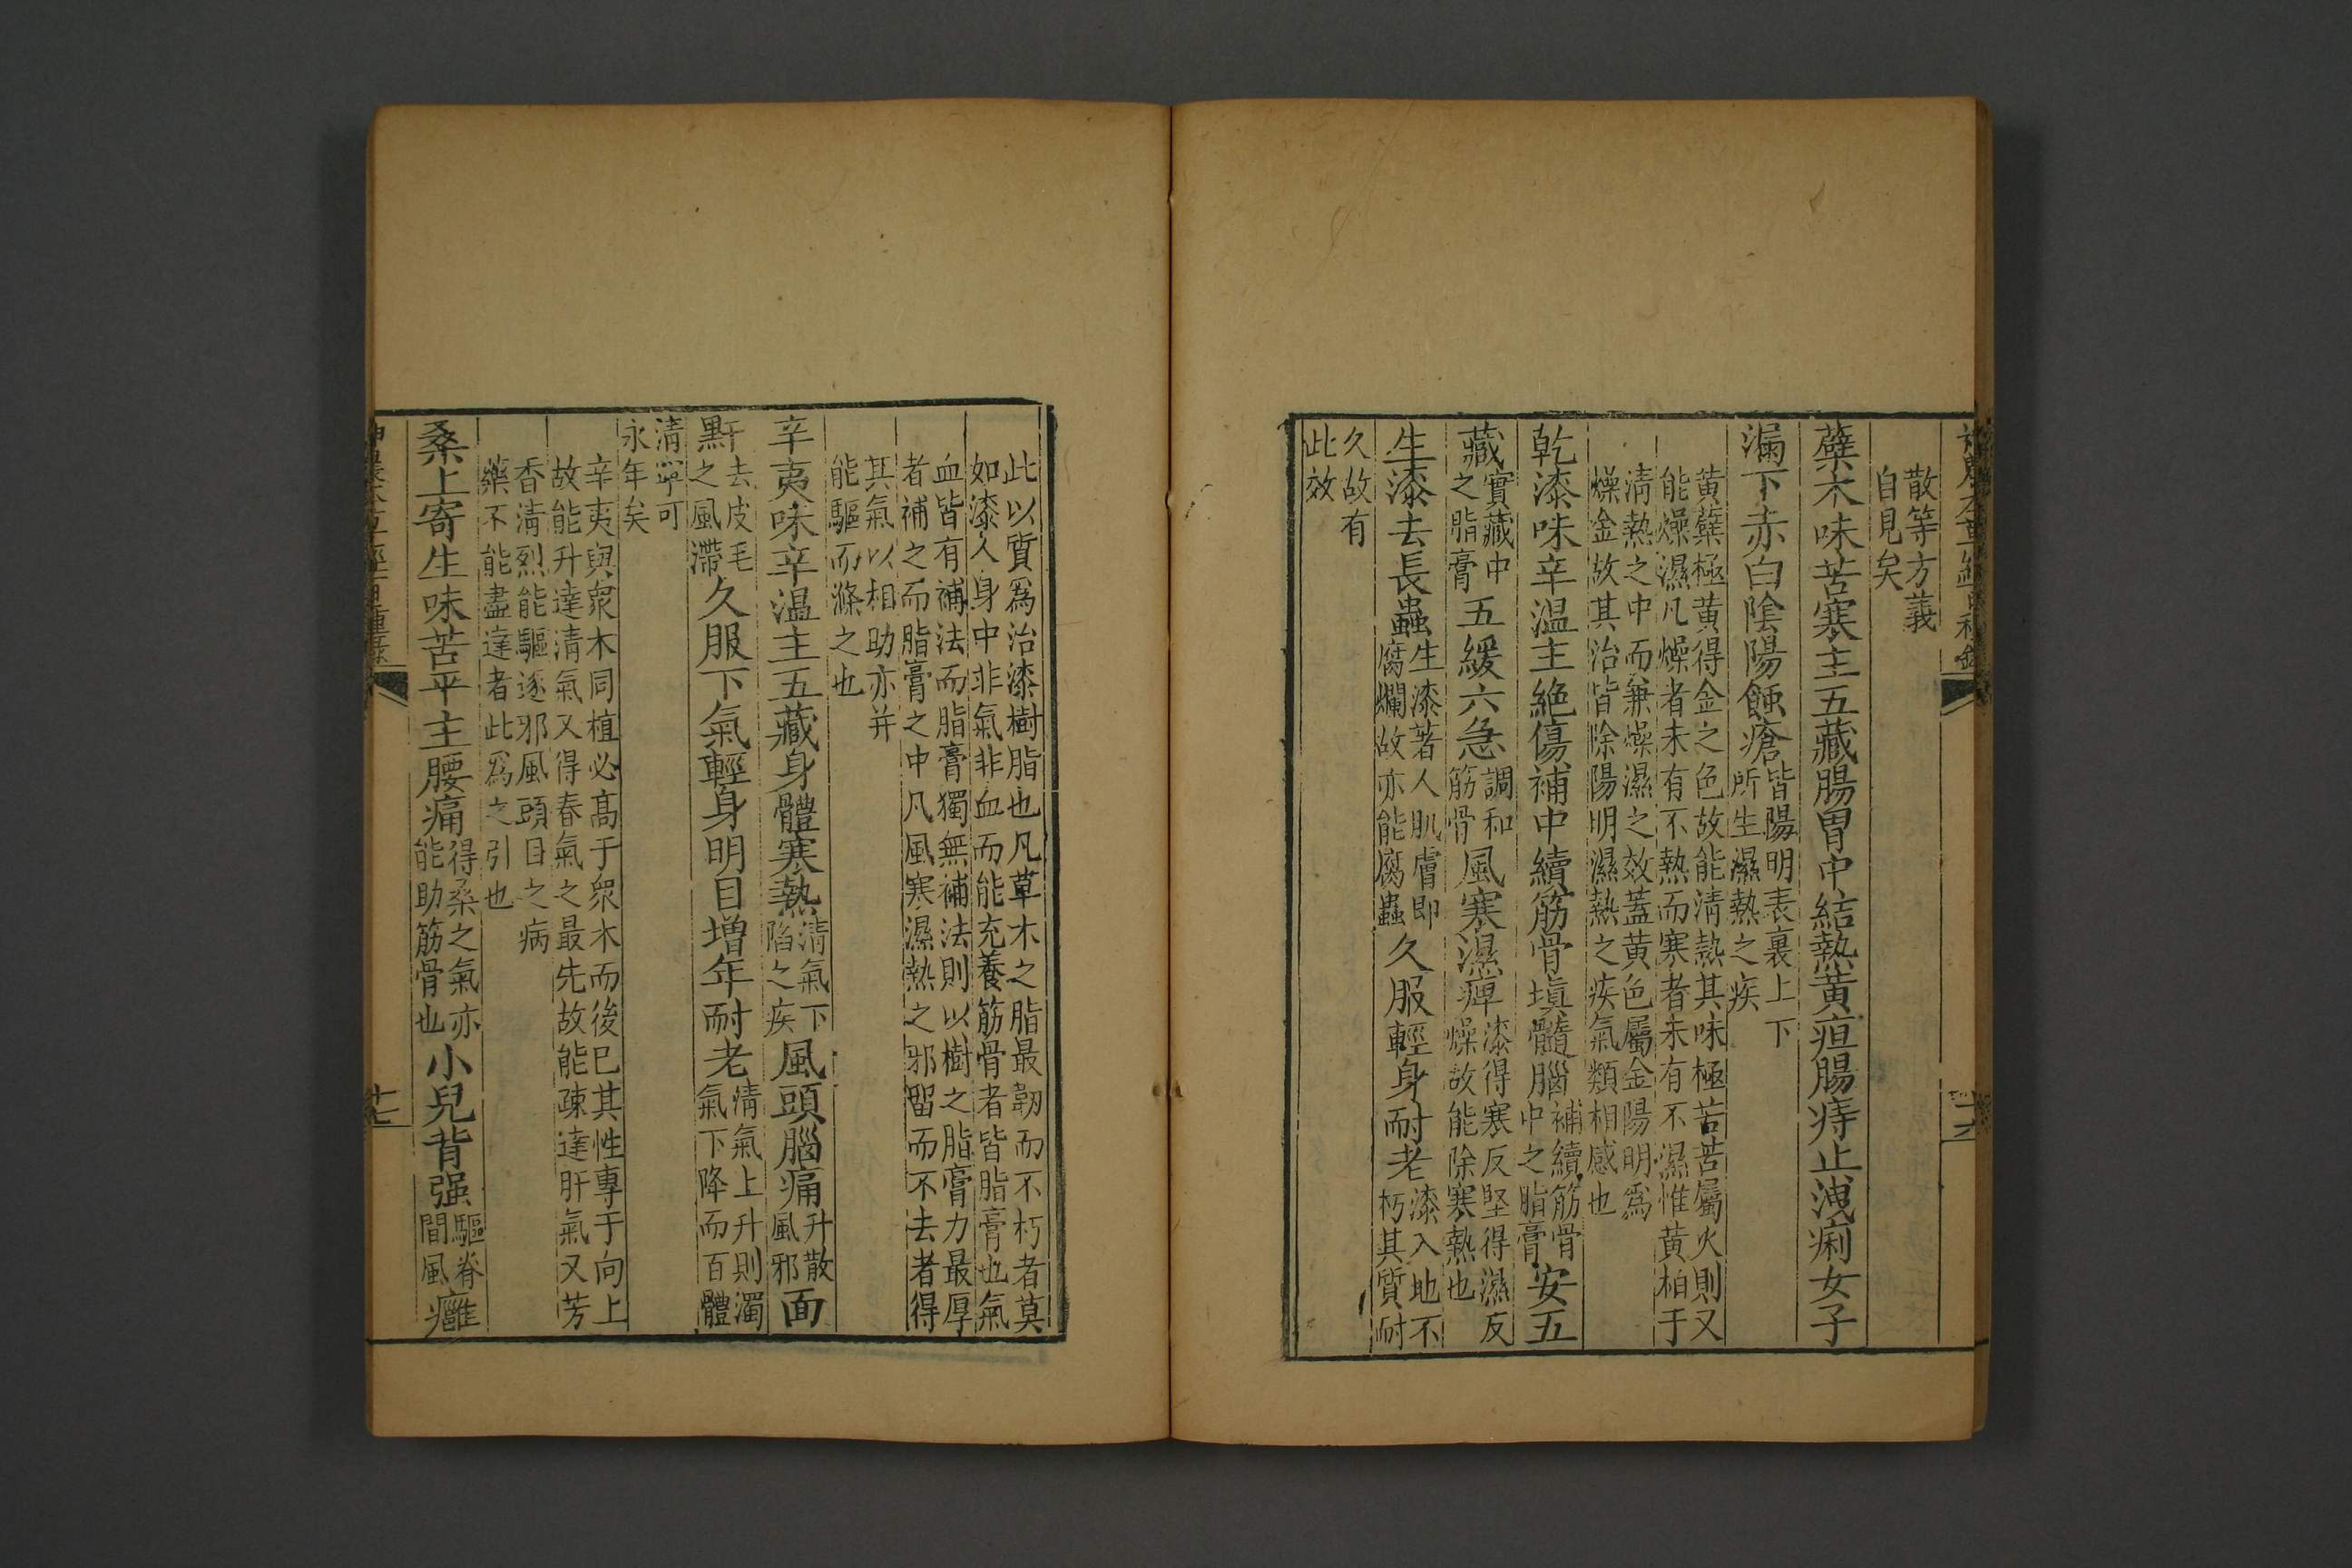 散等方義
自見矣
蘗木味苦寒主五藏腸胃中結熱黃疸腸痔止洩痢女子
漏下赤白陰陽蝕瘡
皆陽明表裏上下
所生濕熱之疾
黃蘗極黃得金之色故能清熱其味極苦苦屬火則又
能燥濕凡燥者未有不熱而寒者未有不濕惟黃柏于
清熱之中而兼燥濕之效蓋黃色屬金陽明爲
燥金故其治皆除陽明濕熱之疾氣類相感也
乾漆味辛溫主絶傷補中續筋骨塡髓腦
補續筋骨
中之脂膏
安五
藏
實藏中
之脂膏
五緩六急
調和
筋骨
風寒濕痺
漆得寒反堅得濕反
燥故能除寒熱也
生漆去長蟲
生漆著人肌膚即
腐爛故亦能腐蟲
久服輕身耐老
漆入地不
朽其質耐
久故有
此效
十六
此以質爲治漆樹脂也凡草木之脂最韌而不朽者莫
如漆人身中非氣非血而能充養筋骨者皆脂膏也氣
血皆有補法而脂膏獨無補法則以樹之脂膏力最厚
者補之而脂膏之中凡風寒濕熱之邪留而不去者得
其氣以相助亦并
能驅而滌之也
辛夷味辛溫主五藏身體寒熱
清氣下
陷之疾
風頭腦痛
升散
風邪
面
䵟
去皮毛
之風滯
久服下氣輕身明目增年耐老
清氣上升則濁
氣下降而百體
清寧可
永年矣
辛夷與衆木同植必高于衆木而後已其性專于向上
故能升達清氣又得春氣之最先故能疎達肝氣又芳
香清烈能驅逐邪風頭目之病
藥不能盡達者此爲之引也
桑上寄生味苦平主腰痛
得桑之氣亦
能助筋骨也
小兒背强
驅脊
間風
癰
十七